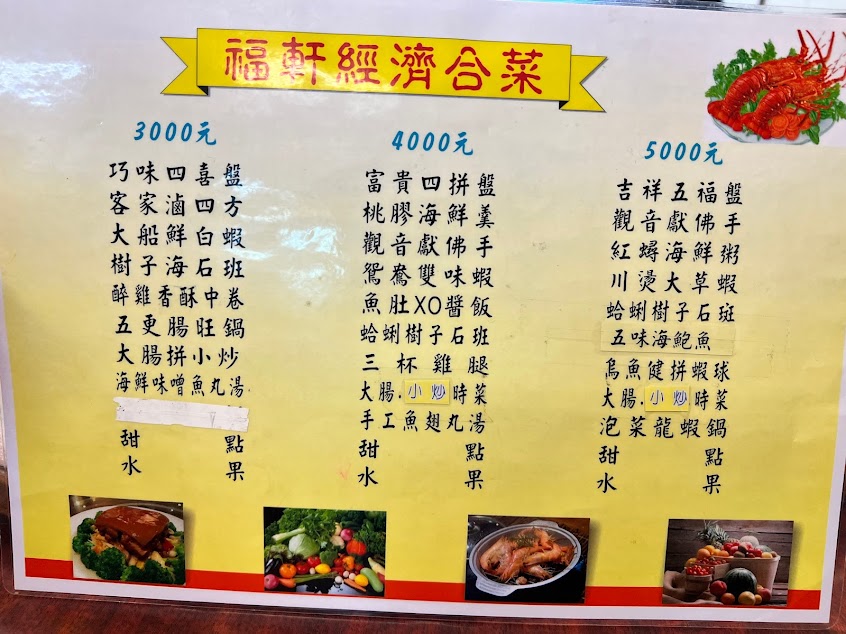 福軒經濟合菜
3000元
巧味四喜盤
客家滷四方
大船鮮白蝦
樹子海石班
醉雞香酥中卷
五更腸旺鍋
大腸拼小炒
海鮮味噌魚丸湯
甜點
水果
4000元
富貴四拼盤
桃膠海鮮羹
觀音獻佛手
鴛鴦雙味蝦
魚肚XO醬飯
蛤蜊樹子石班
三杯雞腿
大腸.小炒時菜
手工魚翅丸湯
甜點
水果
5000元
吉祥五福盤
觀音獻佛手
紅蟳海鮮粥
川燙大草蝦
蛤蜊樹子石斑
五味海鮑魚
烏魚健拼蝦球
大腸.小炒時菜
泡菜龍蝦鍋
甜點
水果